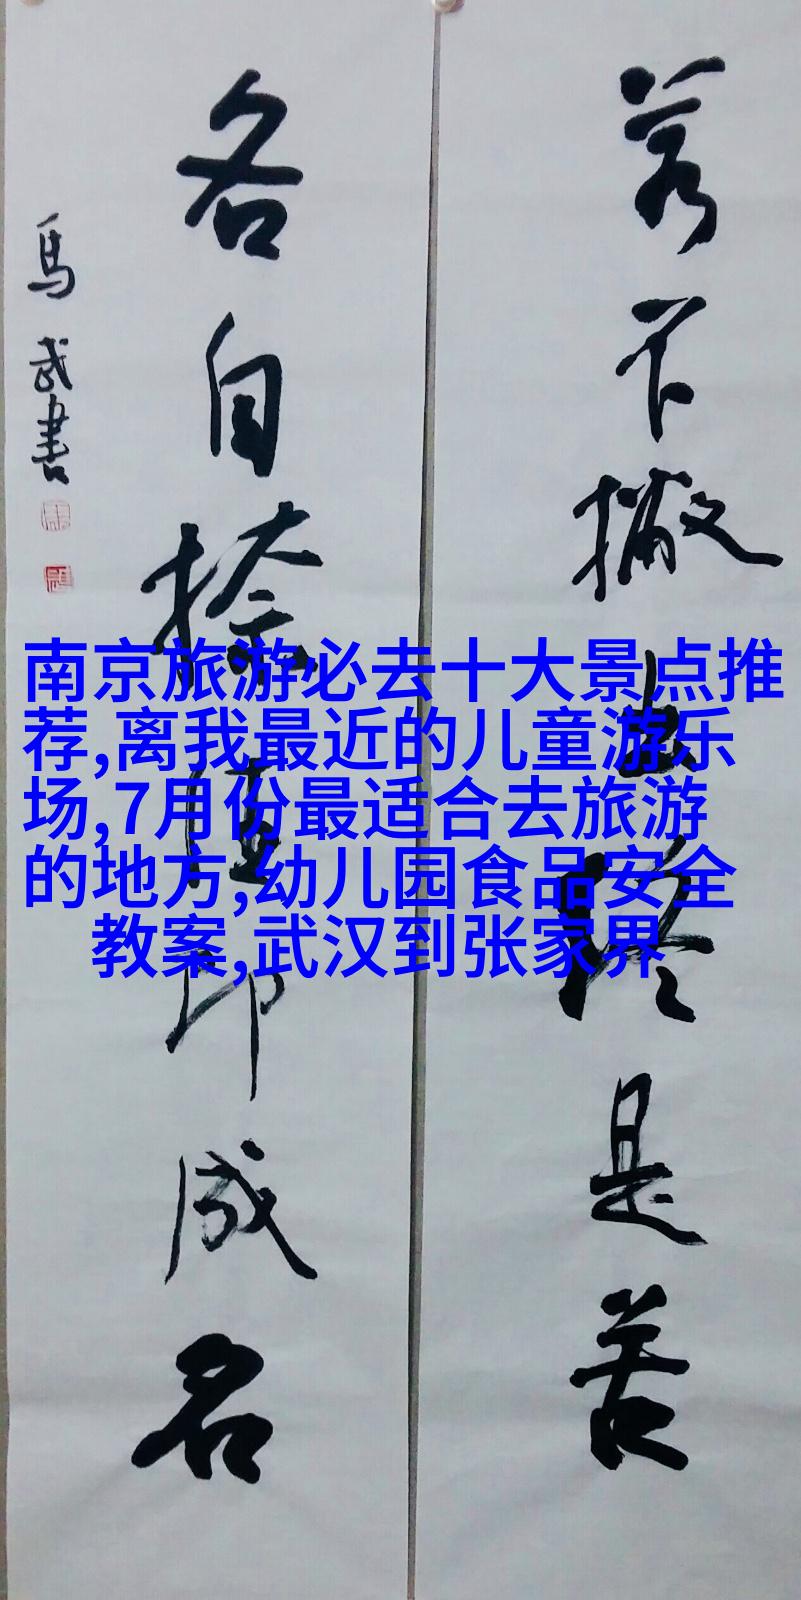 若不撇出终是苦
各自捺住即成名
馬武書
南京旅游必去十大景点推
荐,离我最近的儿童游乐
场,7月份最适合去旅游
的地方,幼儿园食品安全
教案,武汉到张家界